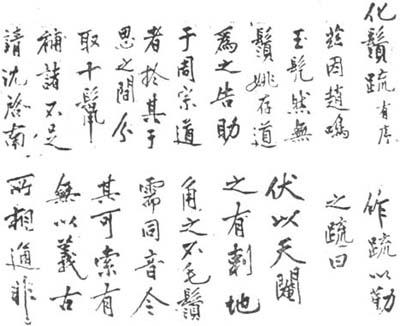 化鬚疏有序
茲因趙鳴
玉髡然無
鬚姚存道
為之告助
于周宗道
者於其于
思之間分
取十鬣
補諸不足
請沈啓南
作疏以勸
之疏曰
伏以天閹
之有剌地
角之不毛鬚
需同音今
其可索有
無以義古
所相通非